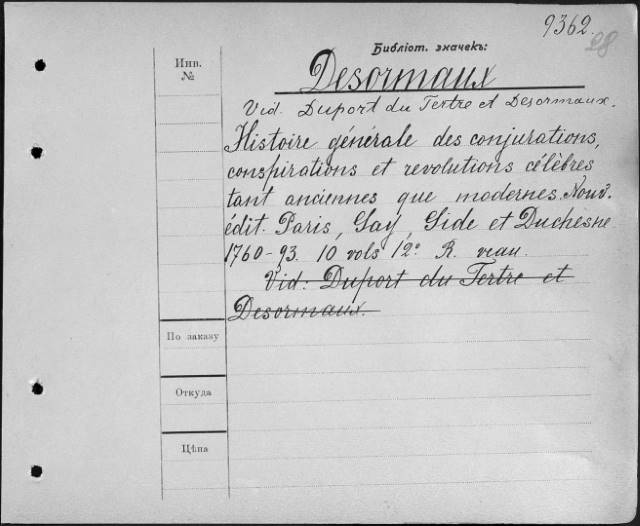 9362.
28
Библіот. значекъ:
Инв.
№
Desormaux
Vid. Duport du Tertre et Desormaux.
Histoire générale des conjurations,
conspirations et revolutions célèbres
tant anciennes que modernes. Nouv.
édit. Paris, Gay, Gide et Duchesne
1760-93. 10 vols 12º R. veau.
Vid: Duport du Tertre et
Desormaux.
По заказу
Откуда
Цѣна